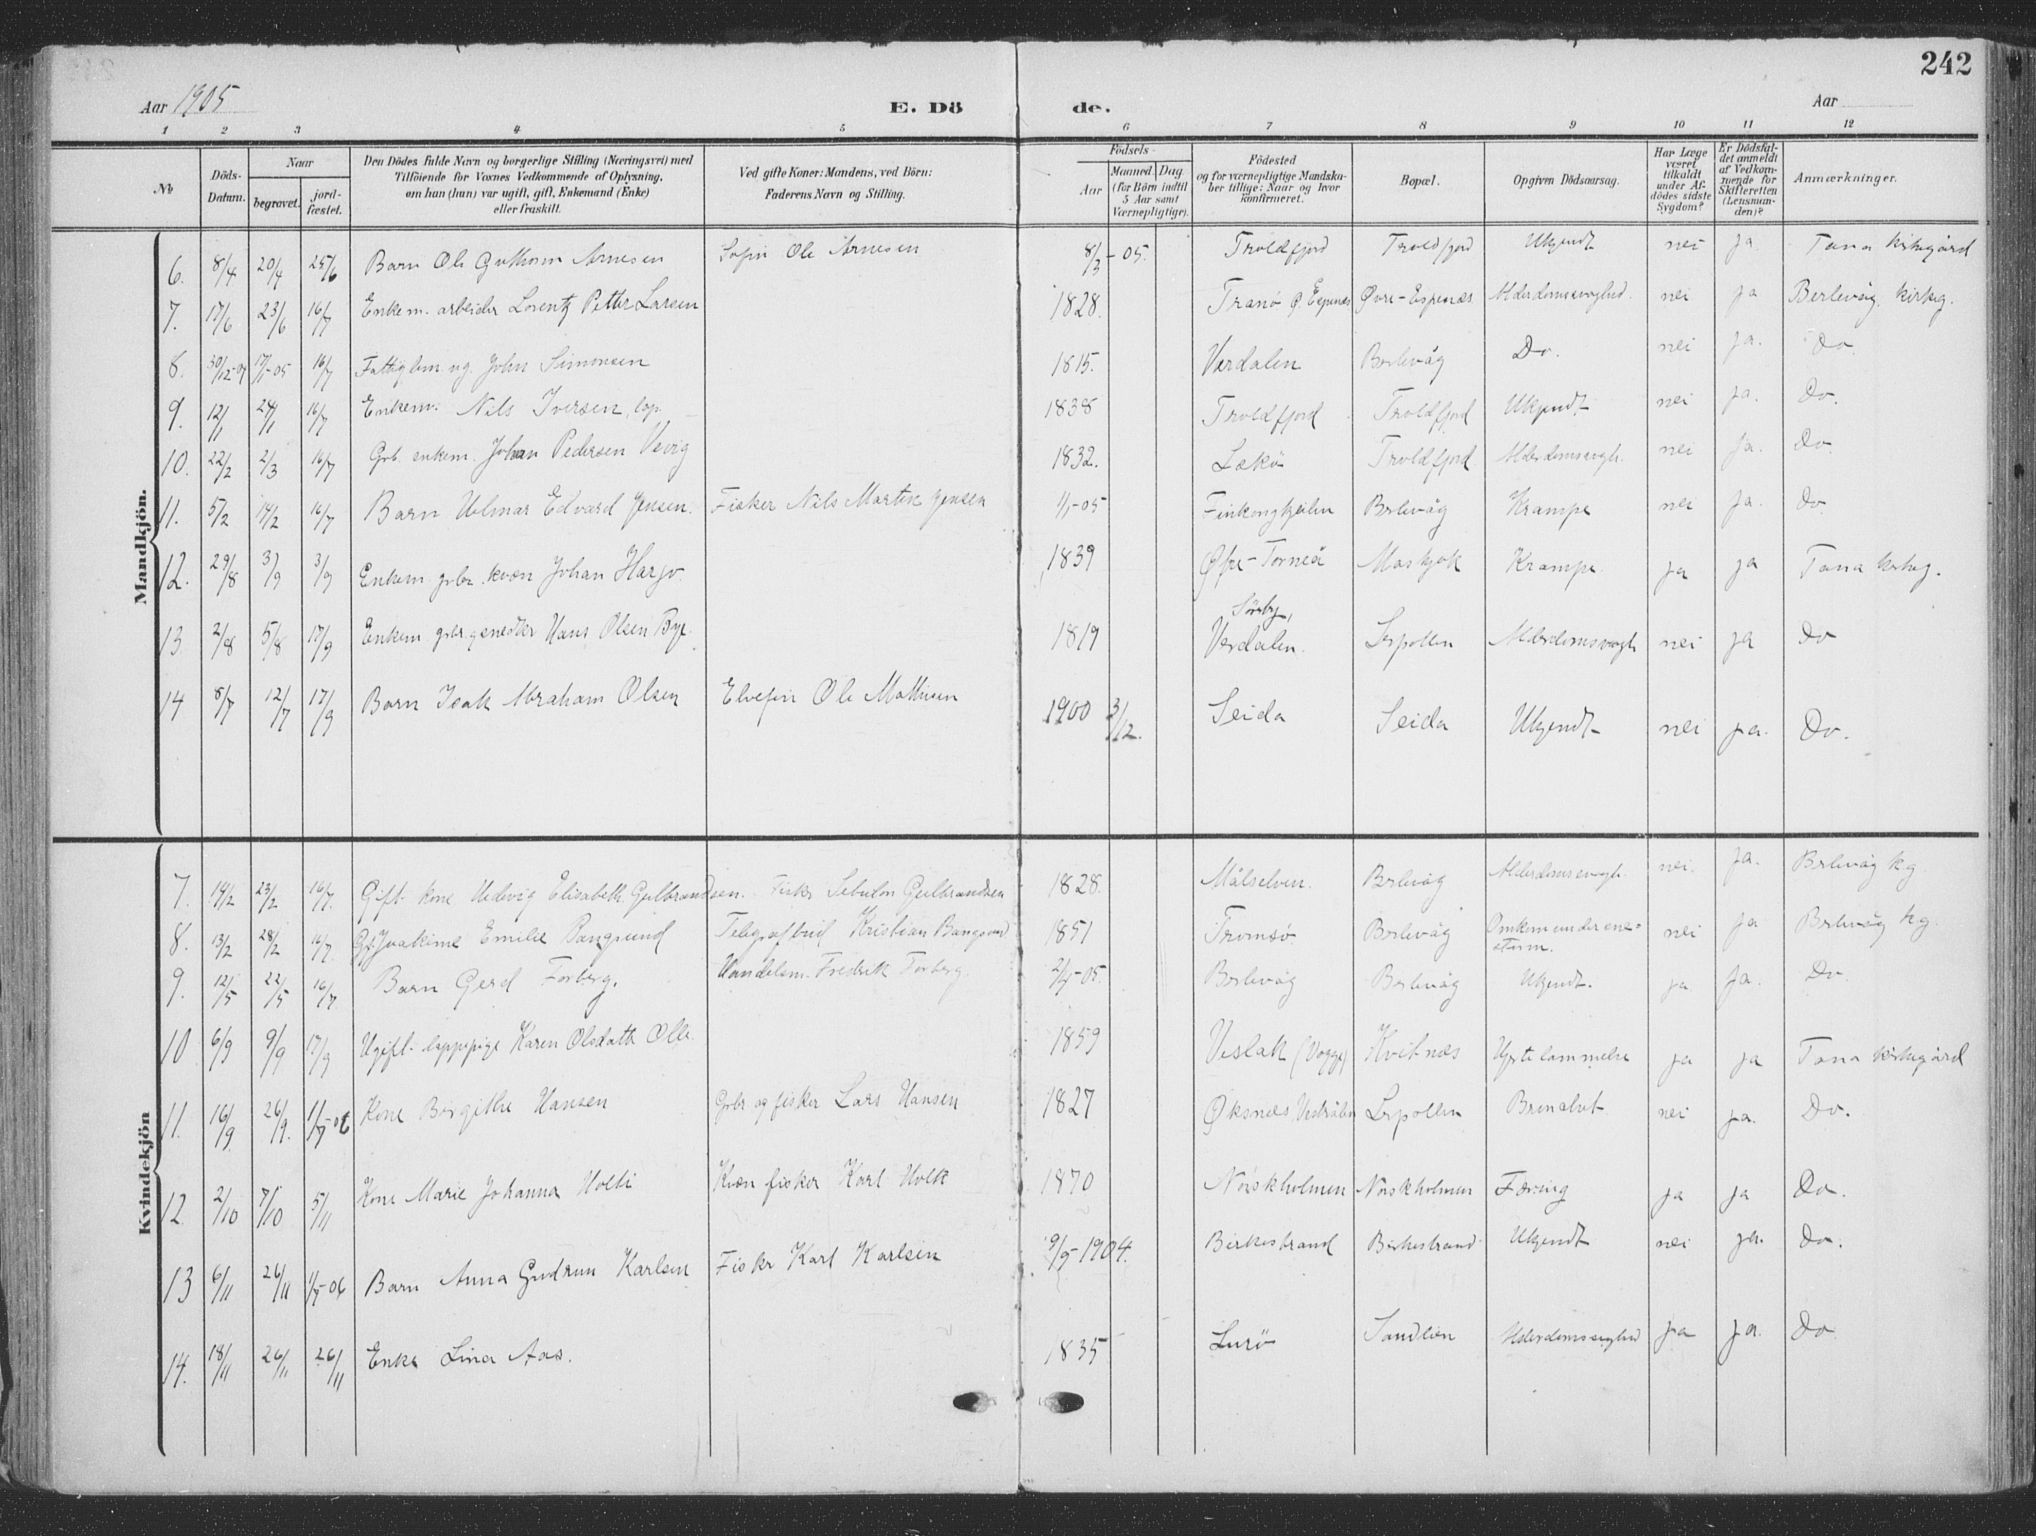 242
Aar 1905
E. Dö de.
Aar
1 2 3 4 5 6 7 8 9 10 11 12
No
Döds-Datum.
Naar
begravet.
jord-fæstet.
Den Dödes fulde Navn og borgerlige Stilling (Næringsvei) med
Tilföiende for Voxnes Vedkommende af Oplysning,
om han (hun) var ugift, gift, Enkemand (Enke)
eller fraskilt.
Ved gifte Koner: Mandens, ved Börn:
Faderens Navn og Stilling.
Födsels-
Aar
Maaned Dag
(for Börn indtil
5 Aar samt
Værnepligtige).
Födested
og for værnepligtige Mandska-
ber tillige: Naar og hvor
konfirmeret.
Bopæl.
Opgiven Dödsaarsag.
Har Læge
været
tilkaldt
under Af-
dödes sidste
Sygdom?
Er Dödsfal-
det anmeldt
af Vedkom-
mende for
Skifteretten
(Lensman-
den)?
Anmærkninger.
Mandkjön.
6. 8/4 20/4 25/6 Barn Ole Guttorm Arnesen Ole Arnesen 8/3-05. Troldfjord Troldfjord Ukjendt nei ja Tana kirkegård
7. 17/6 23/6 16/7 Enkem. arbeider Lorentz Petter Larsen 1828. Tranö Øvre-Espenæs Alderdomssvaghed. nei ja Berlevåg kirkeg.
8. 30/12-04 17/1-05 16/7 Fattiglem ug. John Simonsen 1815. Værdalen Berlevåg Do. nei ja. Do.
9. 12/1 24/1 16/7 Enkem. Nils Iversen, lap 1838 Troldfjord Troldfjord Ukjendt nei ja. Do.
10. 22/2 2/3 16/7 Grb. enkem. Johan Pedersen Vevig 1832. Lekö Troldfjord Alderdomssvagh. nei ja. Do.
11. 5/2 14/2 16/7 Barn Hilmar Edvard Jensen. Fisker Nils Martin Jensen 1/1-05 Finkongkjeilen Berlevåg Krampe nei ja. Do.
12. 29/8 3/9 3/9 Enkem. grbr. kvæn Johan Harju 1839 Øfre-Torneå Maskjok Krampe ja ja Tana kirkeg.
13 2/8 5/8 17/9 Enkem. grbr. Hans Olsen Bye. 1819 Verdalen. Lerpollen Alderdomssvagh nei ja Do
14 8/7 12/7 17/9 Barn Isak Abraham Olsen Elvefin Ole Mathisen 1900 3/12. Seida Seida Ukjendt nei ja. Do.
Kvindekjön
7. 14/2 23/2 16/7. Gift kone Hedvig Elisabeth Gulbrandsen. Fisker Sebulon Gulbrandsen 1828. Målselven. Berlevåg Alderdomssvagh. nei. ja. Berlevåg kg
8. 13/2 28/2 16/7. Gift Joakime Emilie Bangsund Telegrafbud Kristian Bangsund 1851 Tromsö Berlevåg nei ja Berlevåg kg.
9. 12/5 22/5 16/7 Barn Gerd Forberg. Handelsm. Fredrik Forberg. 2/4-05. Berlevåg Berlevåg Ukjendt. ja ja. Do
10 6/9 9/9 17/9 Ugift lappepige Karen Olsdatter Olle. 1859 Veslak (Vagge) Kvitnæs Hjertelammelse ja ja Tana kirkegård
11. 16/9 26/9. 1/7-06 Kone Birgithe Hansen Grbr. og fisker Lars Hansen 1827 Øksnæs Vestrålen Lerpollen Benalvt nei ja. Do.
12. 2/10 7/10 5/11 Kone Marie Johanna Holti Kvæn fisker Karl Holti 1870 Norskholmen Norskholmen Tæring ja ja Do.
13 6/11 26/11 1/7-06 Barn Anna Gudrun Karlsen Fisker Karl Karlsen 9/5-1904. Birkestrand Birkestrand Ukjendt nei ja. Do.
14. 18/11 26/11 26/11 Enke Lina Aas. 1835 Lurö Alderdomssvaghed ja ja. Do